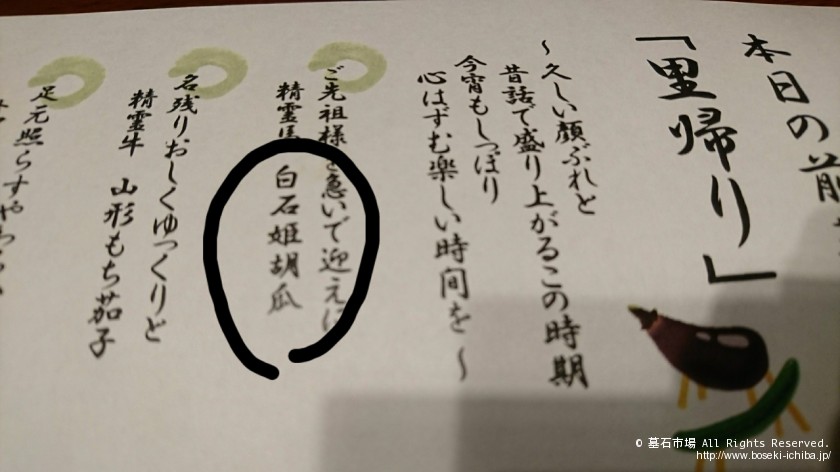 本日の前
「里帰り」
～久しい顔ぶれと
昔話で盛り上がるこの時期
今宵もしっぽり
心はずむ楽しい時間を～
ご先祖様を急いで迎えに
精霊馬 白石姫胡瓜
名残りおしくゆっくりと
精霊牛 山形もち茄子
足元照らすやわらか
© 墓石市場 All Rights Reserved.
http://www.boseki-ichiba.jp/